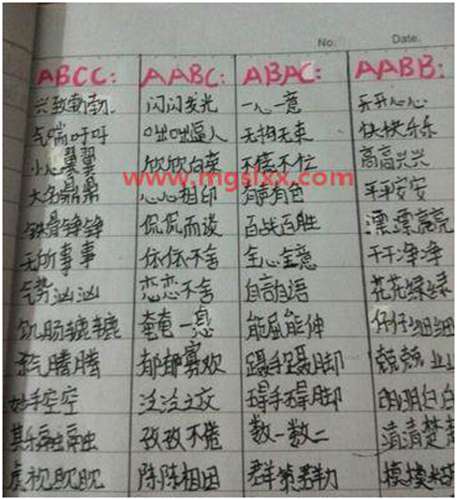 No. Date.
ABCC: AABC: ABAC: AABB:
兴致勃勃 闪闪发光 一心一意 开开心心
气喘吁吁 咄咄逼人 无拘无束 快快乐乐
小心翼翼 欣欣向荣 不慌不忙 高高兴兴
www.mgsfxx.com
大名鼎鼎 心心相印 有声有色 平平安安
铁骨铮铮 侃侃而谈 百战百胜 漂漂亮亮
无所事事 依依不舍 全心全意 干干净净
气势汹汹 恋恋不舍 自言自语 花花绿绿
饥肠辘辘 奄奄一息 能屈能伸 仔仔细细
杀气腾腾 郁郁寡欢 蹑手蹑脚 兢兢业业
妙手空空 泛泛之交 碍手碍脚 明明白白
其乐融融 孜孜不倦 数一数二 清清楚楚
虎视眈眈 陈陈相因 群策群力 模模糊糊